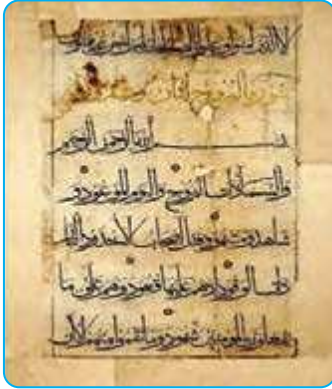 الا الذين امنوا وعملوا الصالحات لهم اجر غير ممنون
سورة البروج
بسم الله الرحمن الرحيم
والسماء ذات البروج واليوم الموعود و
شاهد ومشهود قتل اصحاب الاخدود النار
ذات الوقود اذ هم عليها قعود وهم على ما
يفعلون بالمؤمنين شهود وما نقموا منهم الا ان